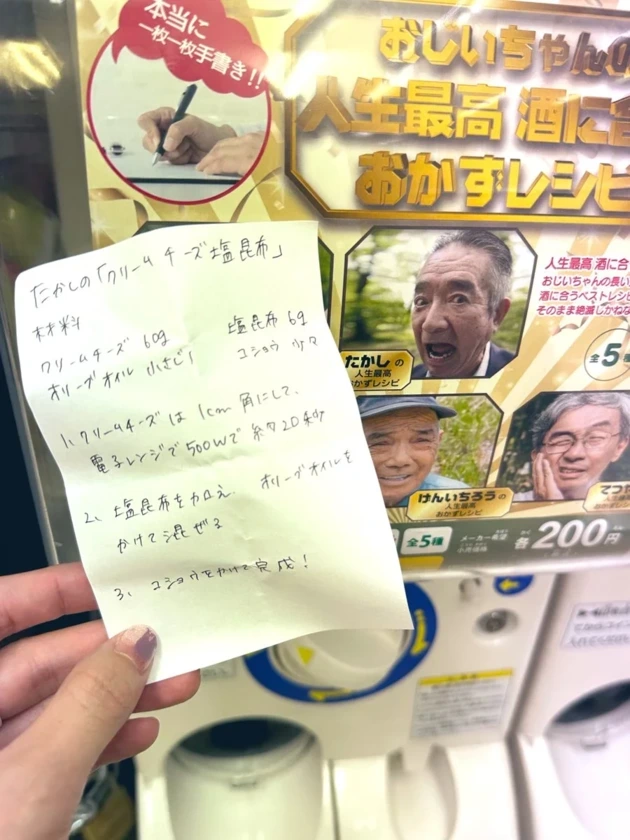 本当に
一枚一枚手書き!!
おじいちゃんの
人生最高 酒に合
おかずレシピ
たかしの「クリームチーズ塩昆布」
材料
クリームチーズ 60g 塩昆布 6g
オリーブオイル 小さじ1 コショウ 少々
1、クリームチーズは1cm角にして、
電子レンジで500Wで約20秒
2、塩昆布を加え、オリーブオイルを
かけて混ぜる
3、コショウをかけて完成!
人生最高 酒に合
おじいちゃんの長い
酒に合うベストレシピ
そのまま絶滅しかね
全5
たかしの
人生最高
おかずレシピ
げんいちろうの
人生最高
おかずレシピ
てつ
全5種
メーカー希望
小売価格
各200円